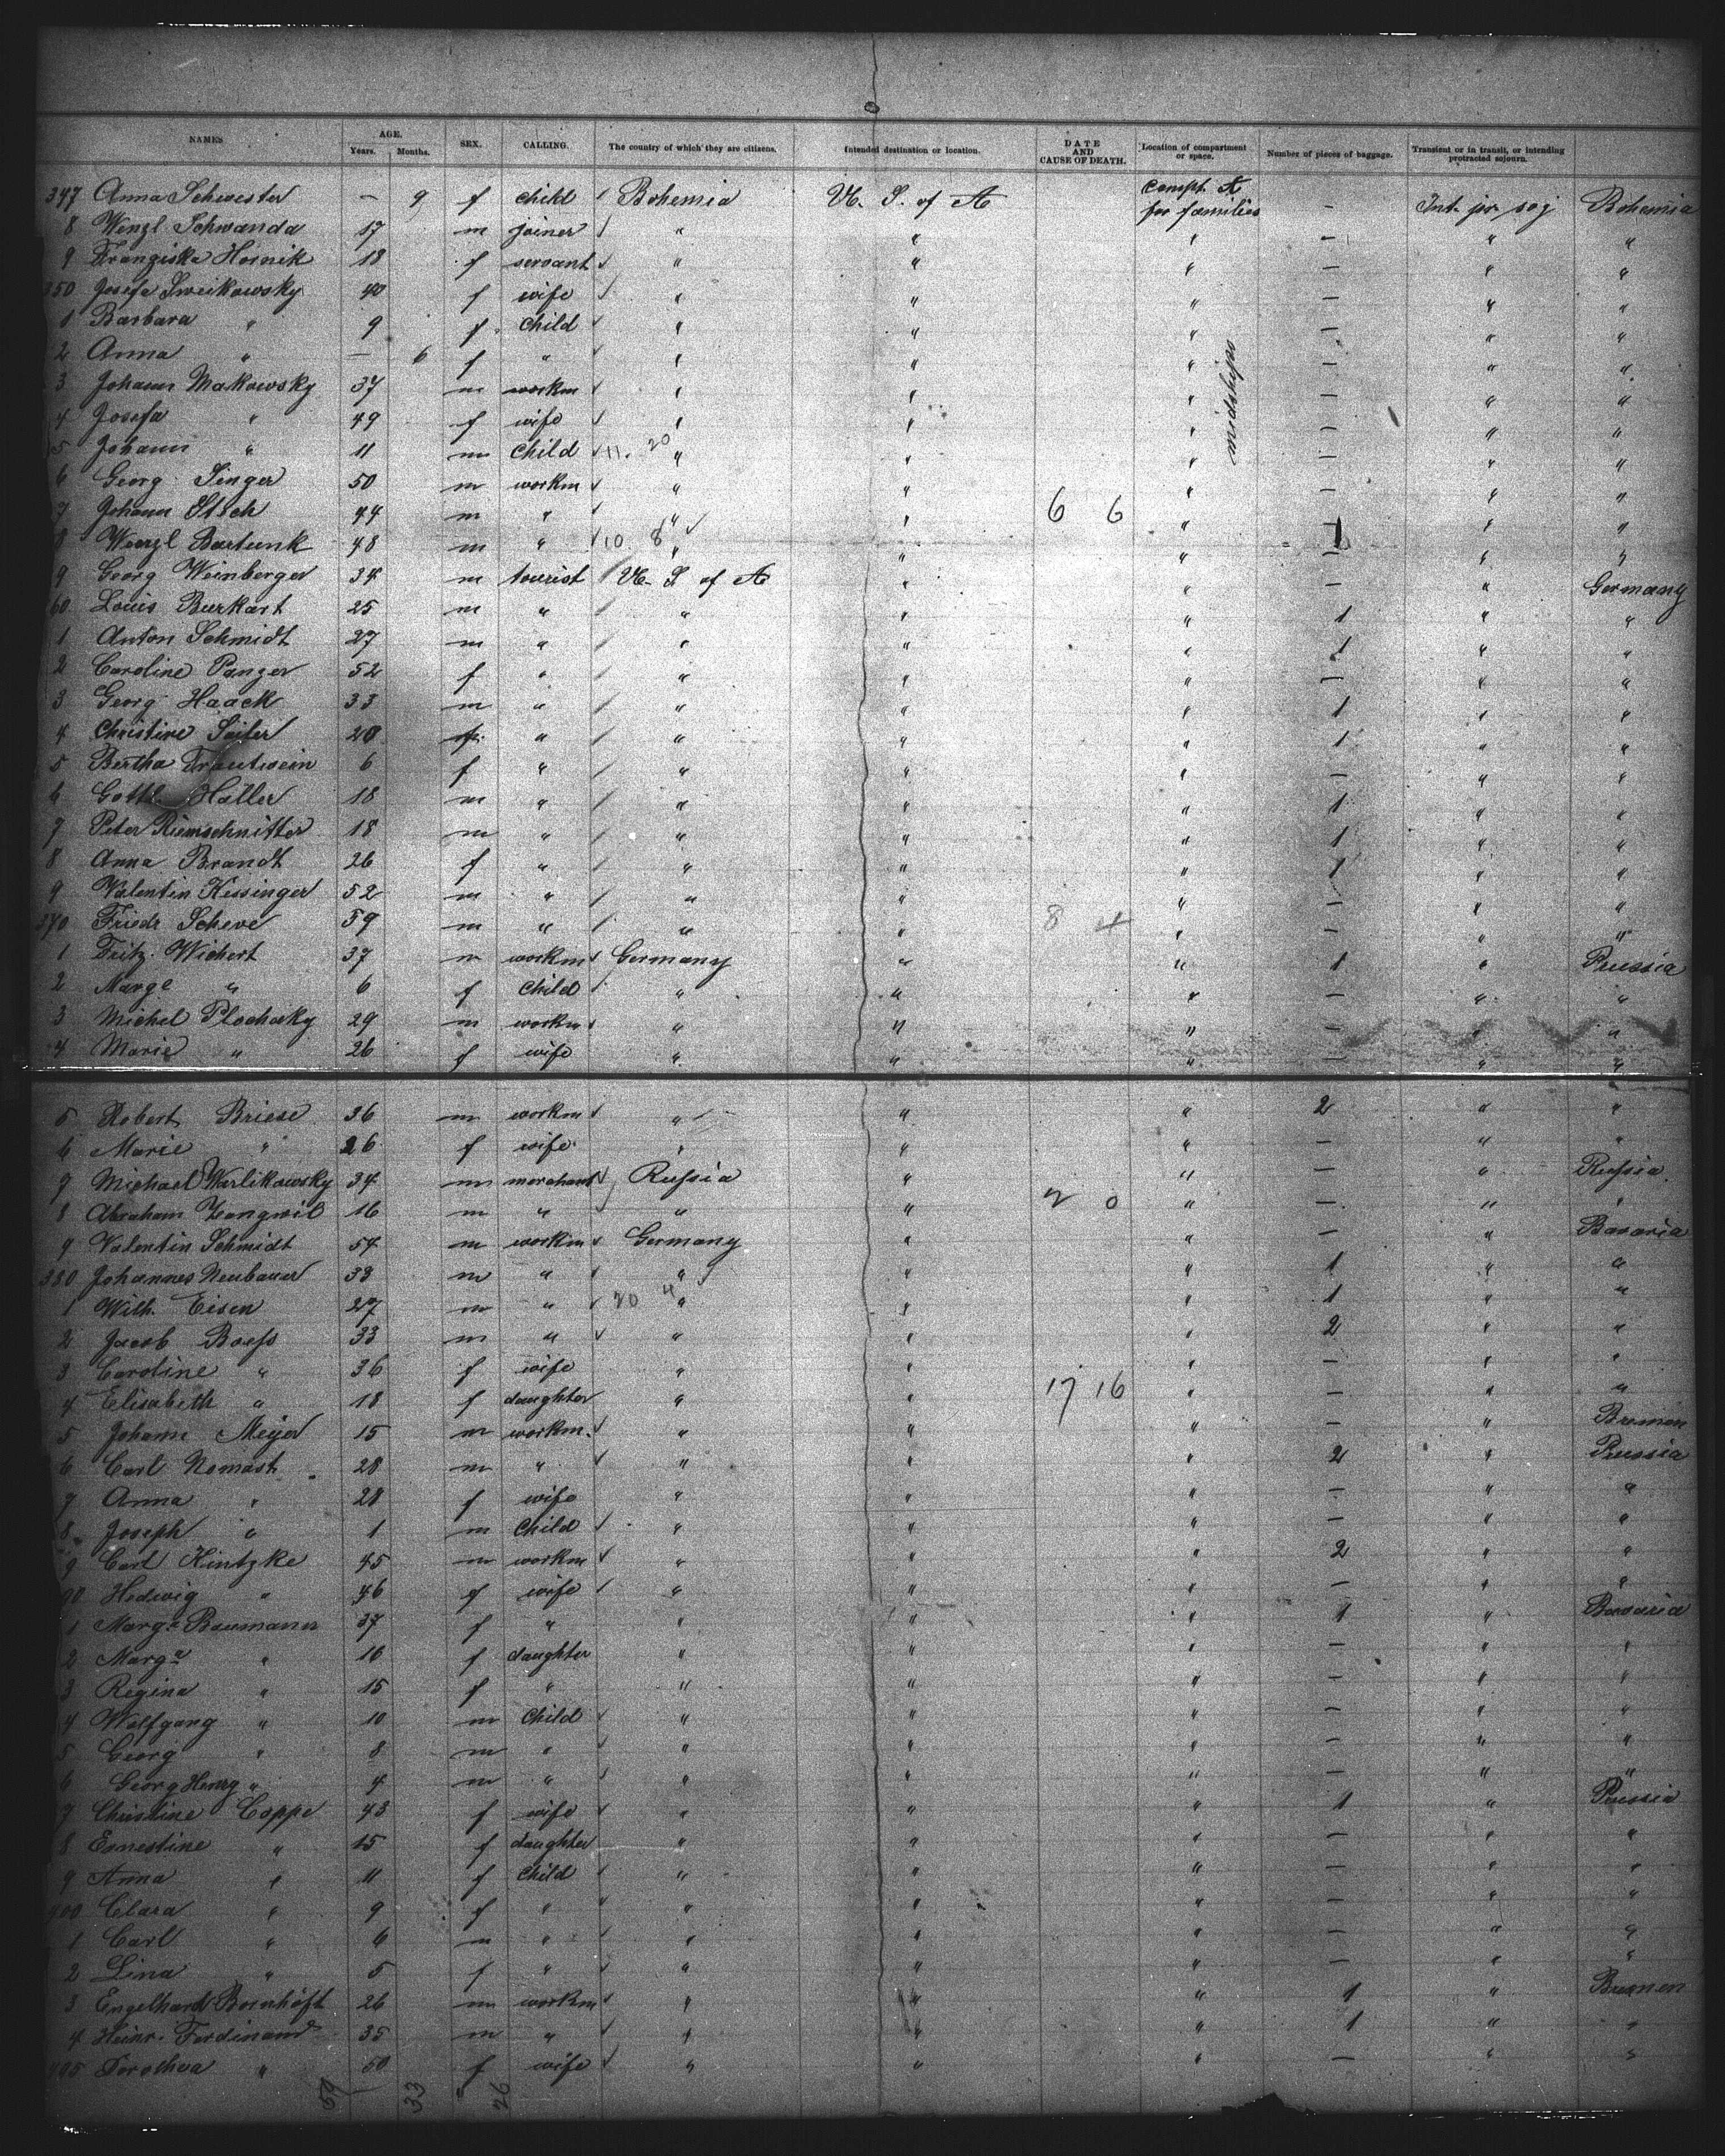 NAMES AGE. Years. Months. SEX. CALLING. The country of which they are citizens. Intended destination or location. DATE AND CAUSE OF DEATH. Location of compartment or space. Number of pieces of baggage. Transient or in transit, or intending protracted sojourn.
347 Anna Schwester — 9 f child Bohemia U. S. of A Compt. A for families — Int. pr. soj Bohemia
8 Wenzl Schwanda 17 m joiner " " " — " "
9 Franziska Hornik 18 f servant " " " — " "
350 Josefa Sweikowsky 40 f wife " " " — " "
1 Barbara " 9 f child " " " — " "
2 Anna " — 6 f " " " " — " "
midships
3 Johann Makowsky 37 m workm " " " — " "
4 Josefa " 49 f wife " " " — " "
5 Johann " 11 m child 11. 20 " " " — " "
6 Georg Singer 50 m workm " " " — " "
7 Johann Stich 44 m " " " 6 6 " — " "
8 Wenzl Bartunk 48 m " 10 8 " " " — " "
9 Georg Weinberger 34 m tourist U. S of A " " " Germany
60 Louis Burkart 25 m " " " " 1 " "
1 Anton Schmidt 27 m " " " " 1 " "
2 Caroline Panzer 52 f " " " " — " "
3 Georg Haack 33 m " " " " 1 " "
4 Christine Seiler 20 f " " " " 1 " "
5 Bertha Trautwein 6 f " " " " — " "
6 Gottl. Haller 18 m " " " " 1 " "
7 Peter Riemschnitter 18 m " " " " 1 " "
8 Anna Brandt 26 f " " " " 1 " "
9 Valentin Kissinger 52 m " " " " — " "
370 Friedr Scheve 59 m " " " 8 4 " — " "
1 Fritz Wichert 37 m workm Germany " " 1 " Prussia
2 Marge " 6 f child " " " — " "
3 Michel Plochocky 29 m workm " " " — " "
4 Marie " 26 f wife " " " — " "
5 Robert Briese 36 m workm " " " 2 " "
6 Marie " 26 f wife " " " — " "
7 Michael Warlikowsky 34 m merchant Russia " " — " Russia
8 Abraham Zangwil 16 m " " " 2 0 " — " "
9 Valentin Schmidt 54 m workm Germany " " — " Bavaria
380 Johannes Neubauer 33 m " " " " 1 " "
1 Wilh. Eisen 27 m " 20 4 " " " 1 " "
2 Jacob Boess 33 m " " " " 2 " "
3 Caroline " 36 f wife " " " — " "
4 Elisabeth " 18 f daughter " " 17 16 " — " "
5 Johann Meyer 15 m workm. " " " — " Bremen
6 Carl Nomast 28 m " " " " 2 " Prussia
7 Anna " 28 f wife " " " — " "
8 Joseph " 1 m child " " " — " "
9 Carl Hintzke 45 m workm " " " 2 " "
90 Hedwig " 46 f wife " " " — " "
1 Marga Baumann 37 f " " " " 1 " Bavaria
2 Marga " 16 f daughter " " " — " "
3 Regina " 15 f " " " " — " "
4 Wolfgang " 10 m child " " " — " "
5 Georg " 8 m " " " " — " "
6 Georg Henry " 4 m " " " " — " "
7 Christine Coppe 43 f wife " " " 1 " Prussia
8 Ernestine " 15 f daughter " " " — " "
9 Anna " 11 f child " " " — " "
400 Clara " 9 f " " " " — " "
1 Carl " 6 m " " " " — " "
2 Lina " 5 f " " " " — " "
3 Engelhard Bornhöft 26 m workm " " " 1 " Bremen
4 Heinr. Ferdinand 35 m " " " " 1 " "
405 Dorothea " 50 f wife " " " — " "
59 33 26